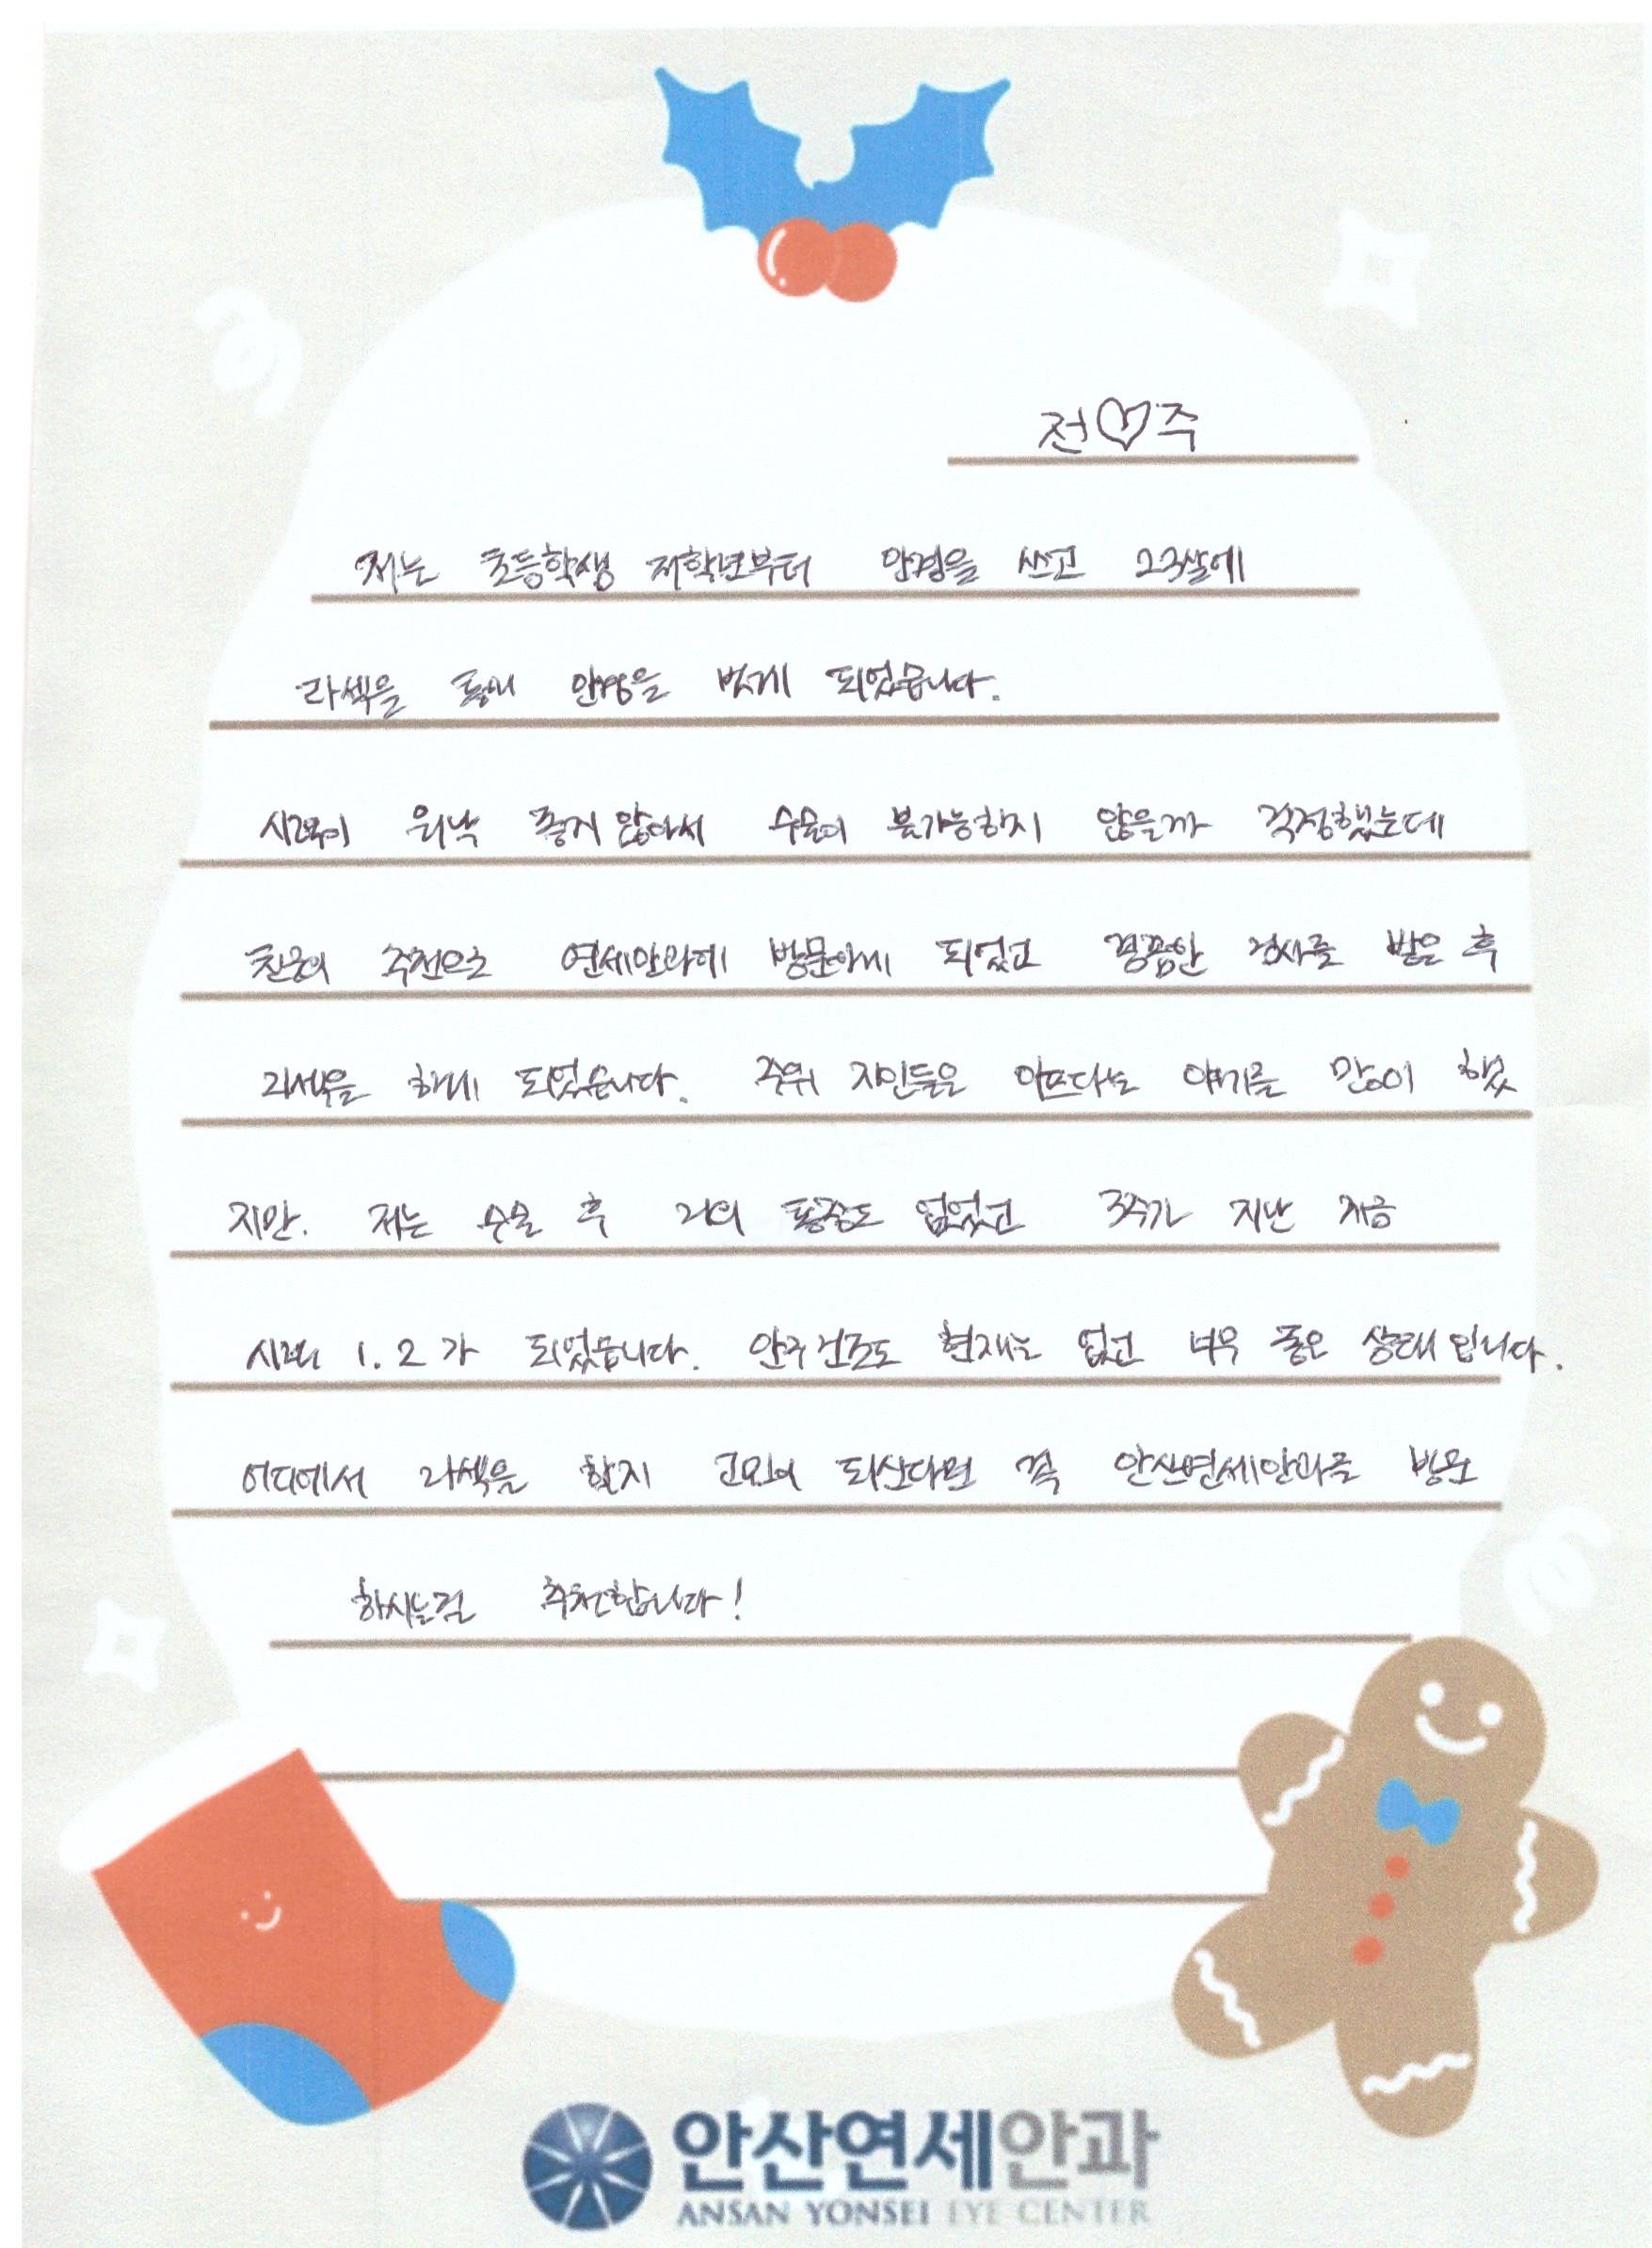 전♡주
저는 초등학생 저학년부터 안경을 쓰고 23살에
라섹을 통해 안경을 벗게 되었습니다.
시력이 워낙 좋지 않아서 수술이 불가능하지 않을까 걱정했는데
친구의 추천으로 연세안과에 방문하게 되었고 꼼꼼한 검사를 받은 후
라섹을 하게 되었습니다. 주위 지인들은 아프다는 얘기를 많이 했
지만. 저는 수술 후 거의 통증도 없었고 3주가 지난 지금
시력 1.2가 되었습니다. 안구건조도 현재는 없고 너무 좋은 상태입니다.
어디에서 라섹을 할지 고민이 되신다면 꼭 안산연세안과를 방문
하시는걸 추천합니다!
안산연세안과
ANSAN YONSEI EYE CENTER